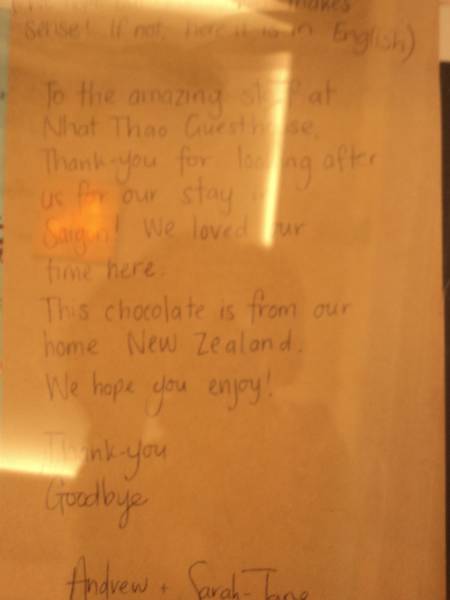 makes
sense! If not, here it is in English)
To the amazing staff at
Nhat Thao Guesthouse,
Thank-you for looking after
us for our stay in
Saigon! We loved our
time here.
This chocolate is from our
home New Zealand.
We hope you enjoy!
Thank-you
Goodbye
Andrew + Sarah-Jane